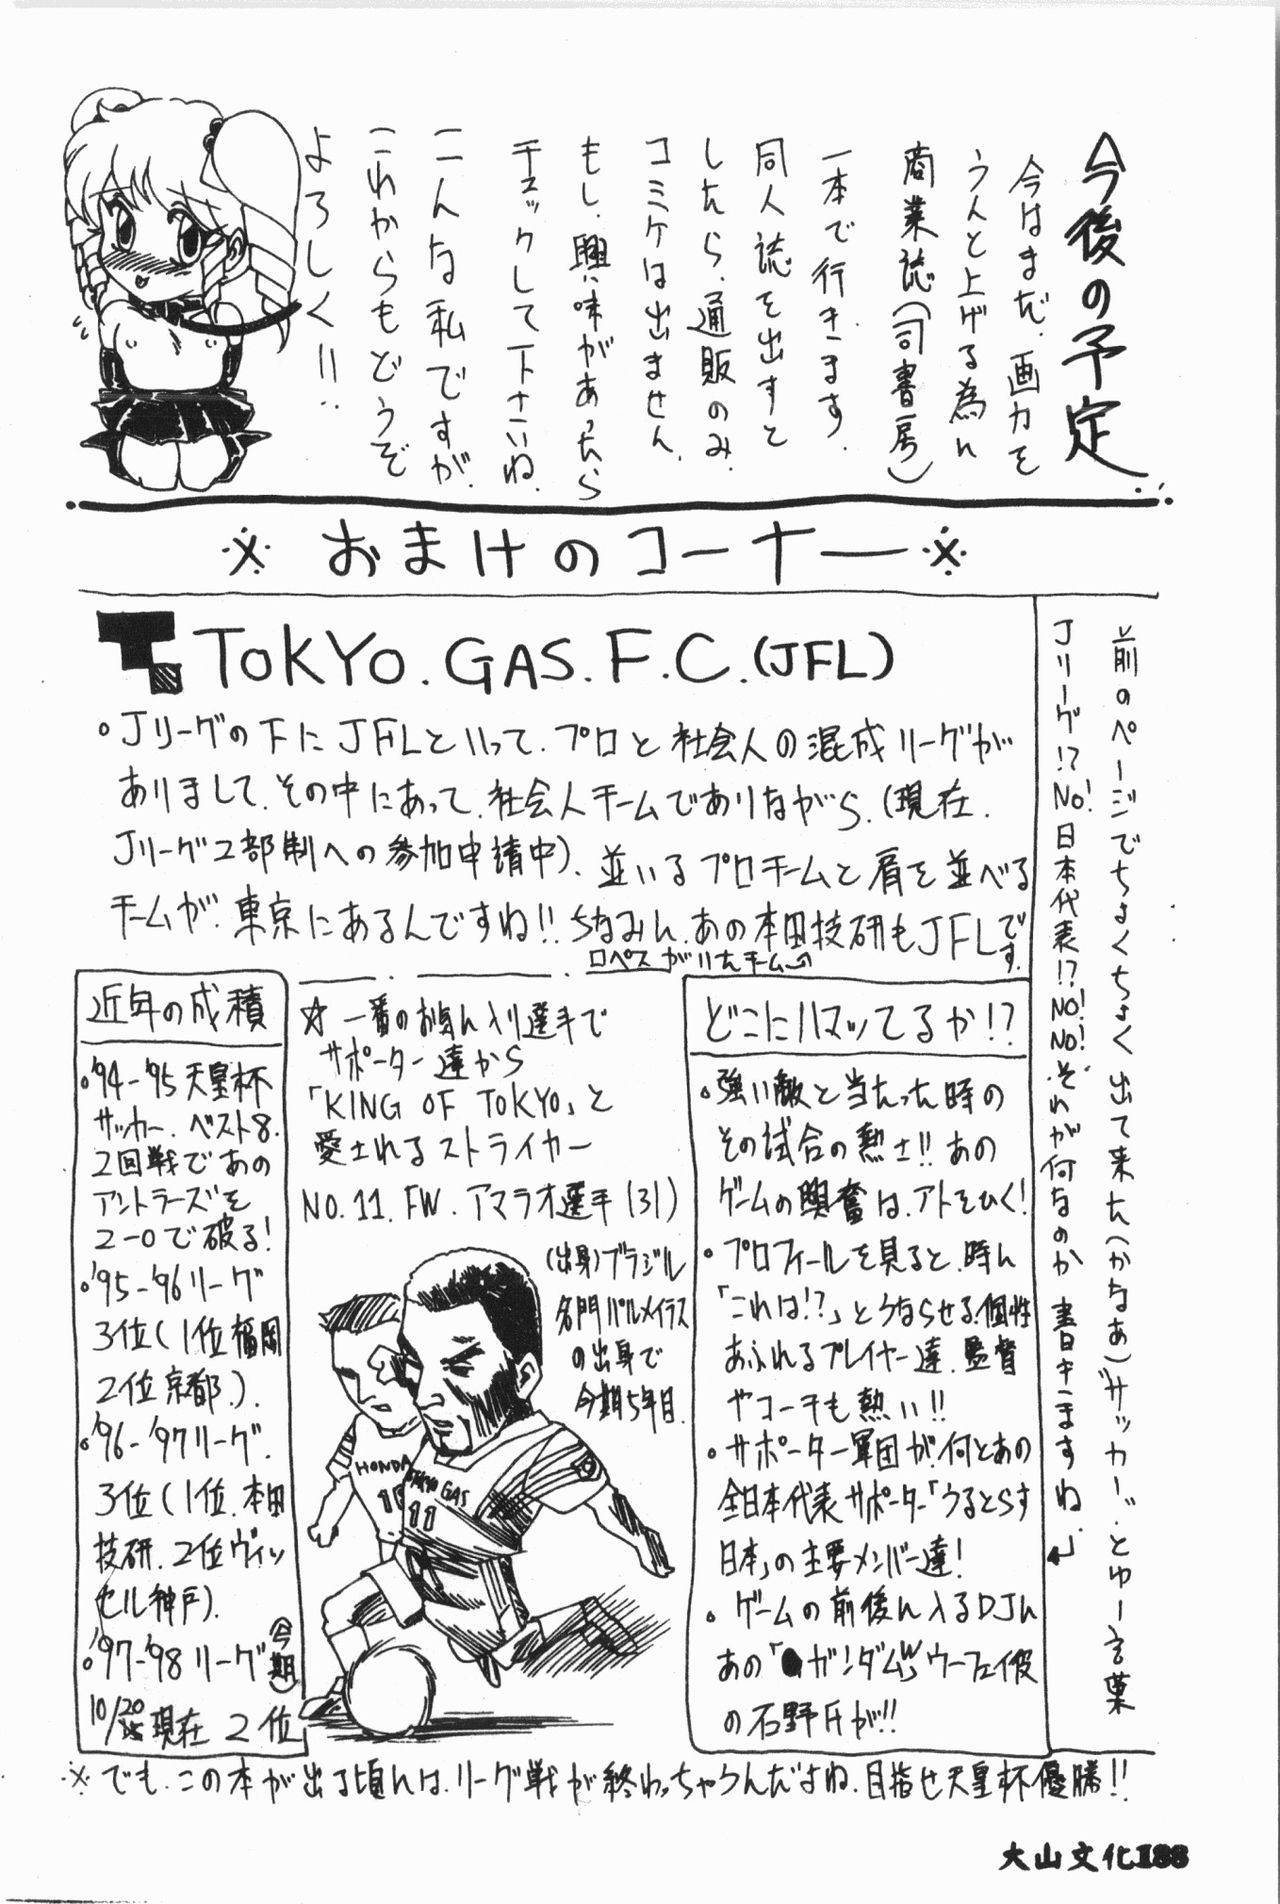 今後の予定
今はまだ、画力を
うんと上げる為に
商業誌(司書房)
一本で行きます.
同人誌を出すと
したら、通販のみ.
コミケは出ません.
もし、興味があったら
チェックして下さいね.
こんな私ですが.
これからもどうぞ
よろしく!!
※おまけのコーナー※
前のページでちょくちょく出て来た(かなぁ)"サッカー".とゆー言葉
Jリーグ!?No!日本代表!?NO!NO!それが何なのか書きますね.
TOKYO.GAS.F.C.(JFL)
Jリーグの下にJFLといって.プロと社会人の混成リーグが
ありまして.その中にあって.社会人チームでありながら.(現在.
Jリーグ2部制への参加申請中).並いるプロチームと肩を並べる
チームが.東京にあるんですね!!ちなみに.あの本田技研もJFLです.
ロペスがいたチーム
近年の成積
'94-'95天皇杯
サッカー.ベスト8.
2回戦であの
アントラーズを
2-0で破る!
'95-'96リーグ
3位(1位福岡
2位京都.).
'96-'97リーグ.
3位(1位.本田
技研.2位ヴィッ
セル神戸).
'97-'98リーグ(今期)
10/20現在 2位
☆一番のお気に入り選手で
サポーター達から
「KING OF TOKYO」と
愛されるストライカー
NO.11.FW.アマラオ選手(31)
(出身)ブラジル
名門パルメイラス
の出身で
今期5年目.
HONDA
10
TOKYO GAS
11
どこにハマッてるか!?
強い敵と当たった時の
その試合の熱さ!!あの
ゲームの興奮は.アトをひく!
プロフィールを見ると.時に
「これは!?」とうならせる.個性
あふれるプレイヤー達.監督
やコーチも熱い!!
サポーター軍団が.何とあの
全日本代表サポーター「うるとらす
日本」の主要メンバー達!
ゲームの前後に入るDJに
あの「ガンダムW」ウーフェイ役
の石野氏が!!
※でも.この本が出る頃には.リーグ戦が終わっちゃうんだよね.目指せ天皇杯優勝!!
大山文化188